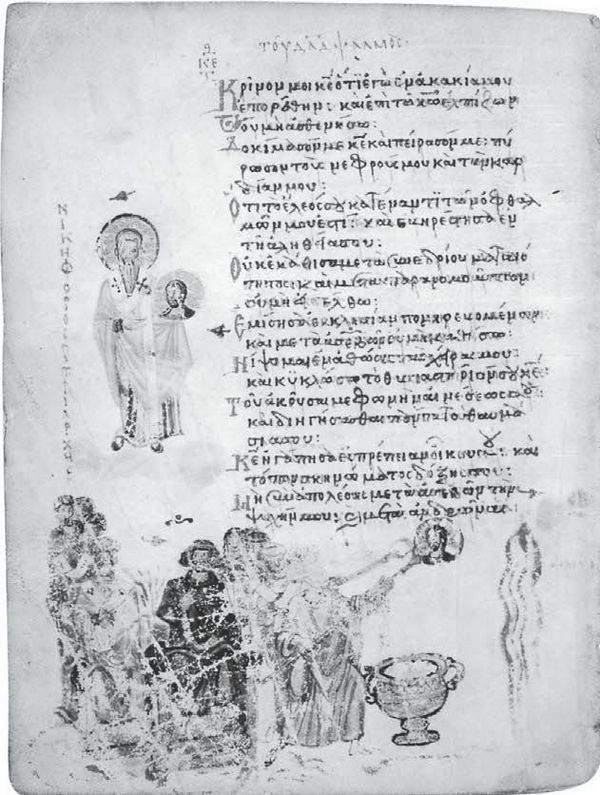 ΤΟΥ ΔΑΔ ΨΑΛΜΟΣ
Κρῖνόν μοι κε ὅτι ἐγὼ ἐν ἀκακία μου
ἐπορεύθην· καὶ ἐπὶ τῶ κω ἐλπίζων
οὐ μὴ ἀσθενήσω:
Δοκίμασόν με κε καὶ πείρασόν με· πύ
ρωσον τοὺς νεφρούς μου καὶ τὴν καρ
δίαν μου:
Ὅτι τὸ ἔλεός σου κατέναντι τῶν ὀφθαλ
μῶν μου ἐστί· καὶ εὐηρέστησα ἐν
τῆ ἀληθεία σου:
Οὐκ ἐκάθισα μετὰ συνεδρίου ματαιό
τητος· καὶ μετὰ παρανομούντων
οὐ μὴ εἰσέλθω:
Ἐμίσησα ἐκκλησίαν πονηρευομένων
καὶ μετὰ ἀσεβῶν οὐ μὴ καθίσω:
Νίψομαι ἐν ἀθώοις τὰς χεῖρας μου
καὶ κυκλώσω τὸ θυσιαστήριόν σου κε:
Τοῦ ἀκοῦσαί με φωνῆς αἰνέσεώς σου
καὶ διηγήσασθαι πάντα τὰ θαυμά
σιά σου:
Κε ἠγάπησα εὐπρέπειαν οἴκου σου· καὶ
τόπον σκηνώματος δόξης σου:
Μὴ συναπολέσης μετὰ ἀσεβῶν τὴν
ψυχήν μου· μετὰ ἀνδρῶν αἱμα
ΝΙΚΗΦΟΡΟΣ